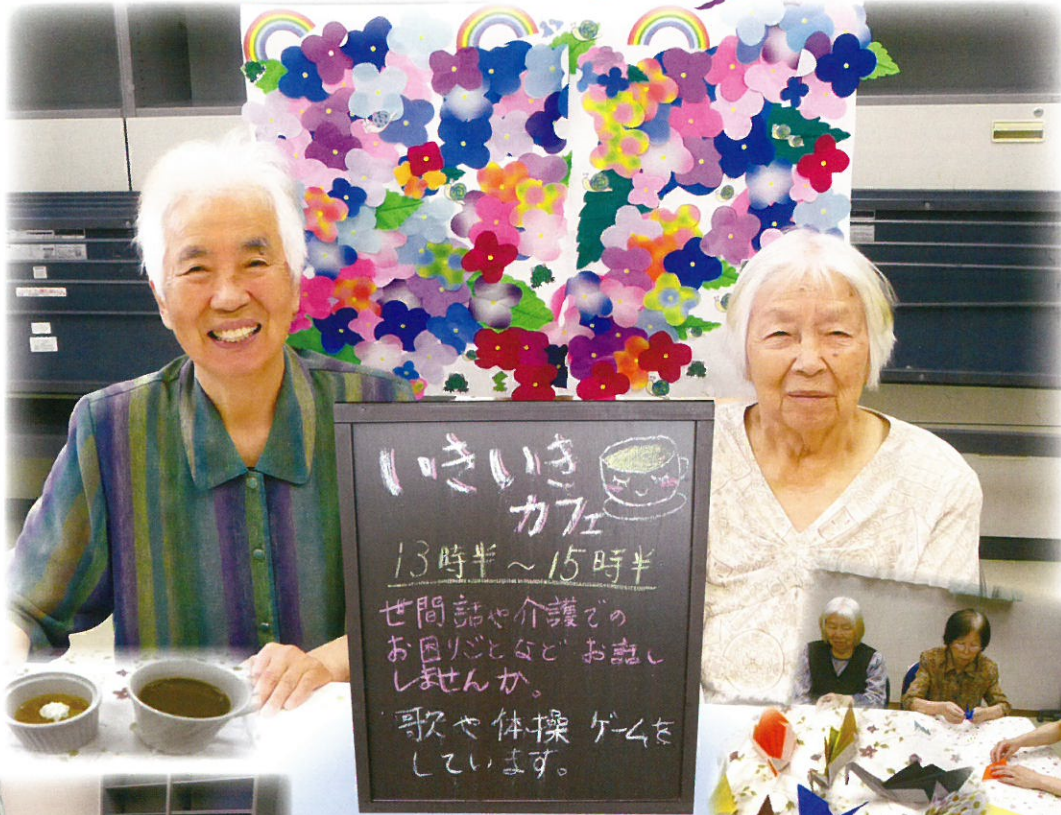 いきいき
カフェ
13時半～15時半
世間話や介護での
お困りごとなど お話し
しませんか。
歌や体操 ゲームを
しています。